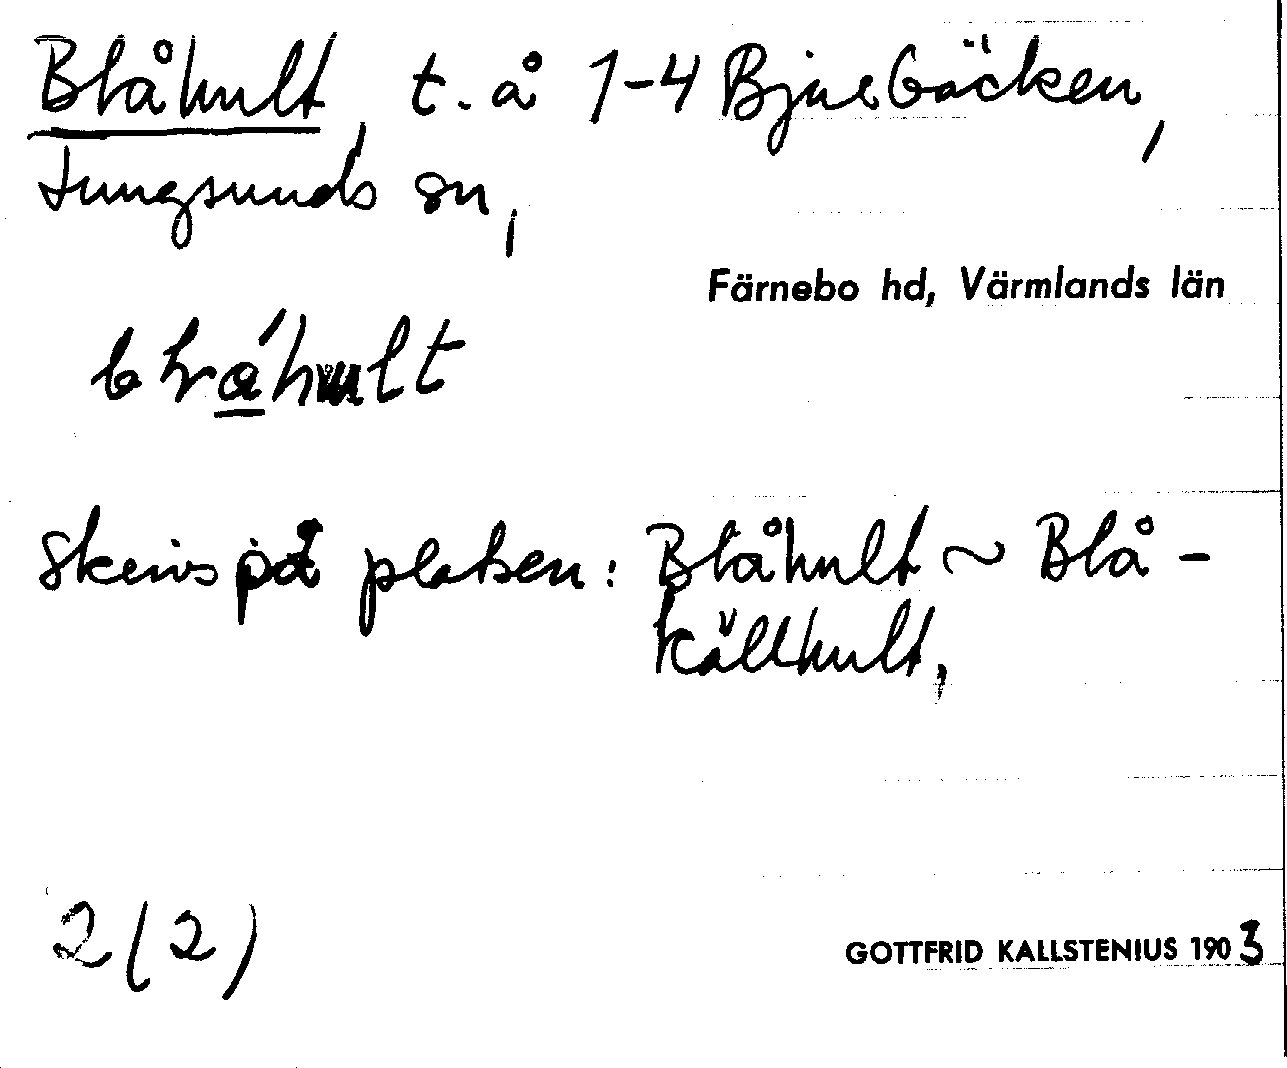 Blåhult, t. å 1-4 Bjurbäcken,
Lungsunds sn,
Färnebo hd, Värmlands län
Skrivs på platsen: Blåhult ~ Blå-
källhult,
2(2)
GOTTFRID KALLSTENIUS 1903